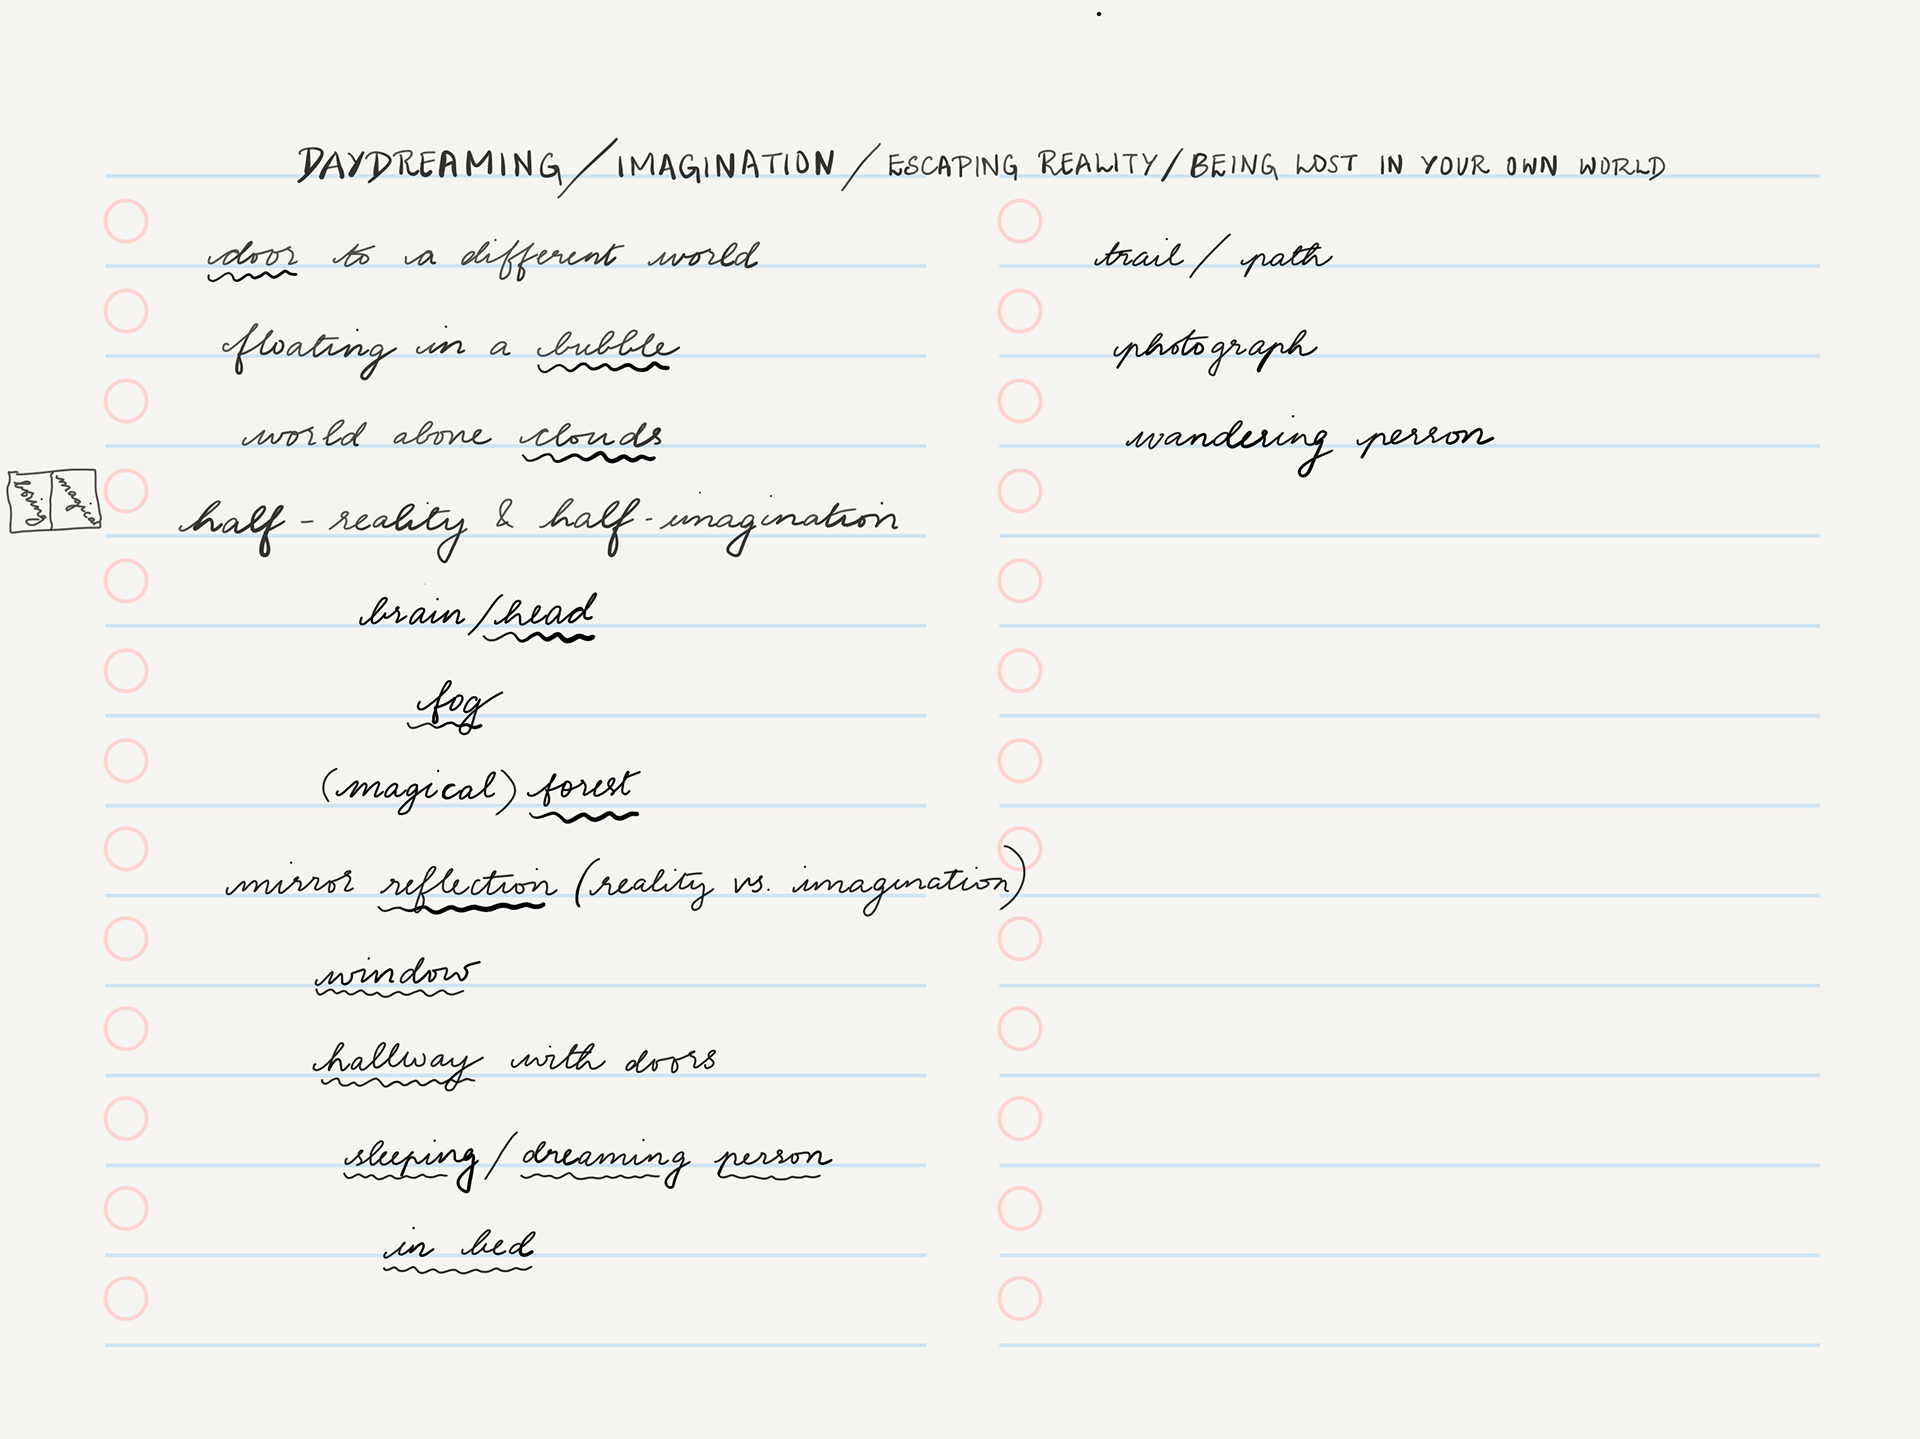 DAYDREAMING / IMAGINATION / ESCAPING REALITY / BEING LOST IN YOUR OWN WORLD
door to a different world
floating in a bubble
world above clouds
boring magical
half - reality & half - imagination
brain / head
fog
(magical) forest
mirror reflection (reality vs. imagination)
window
hallway with doors
sleeping / dreaming person
in bed
trail / path
photograph
wandering person